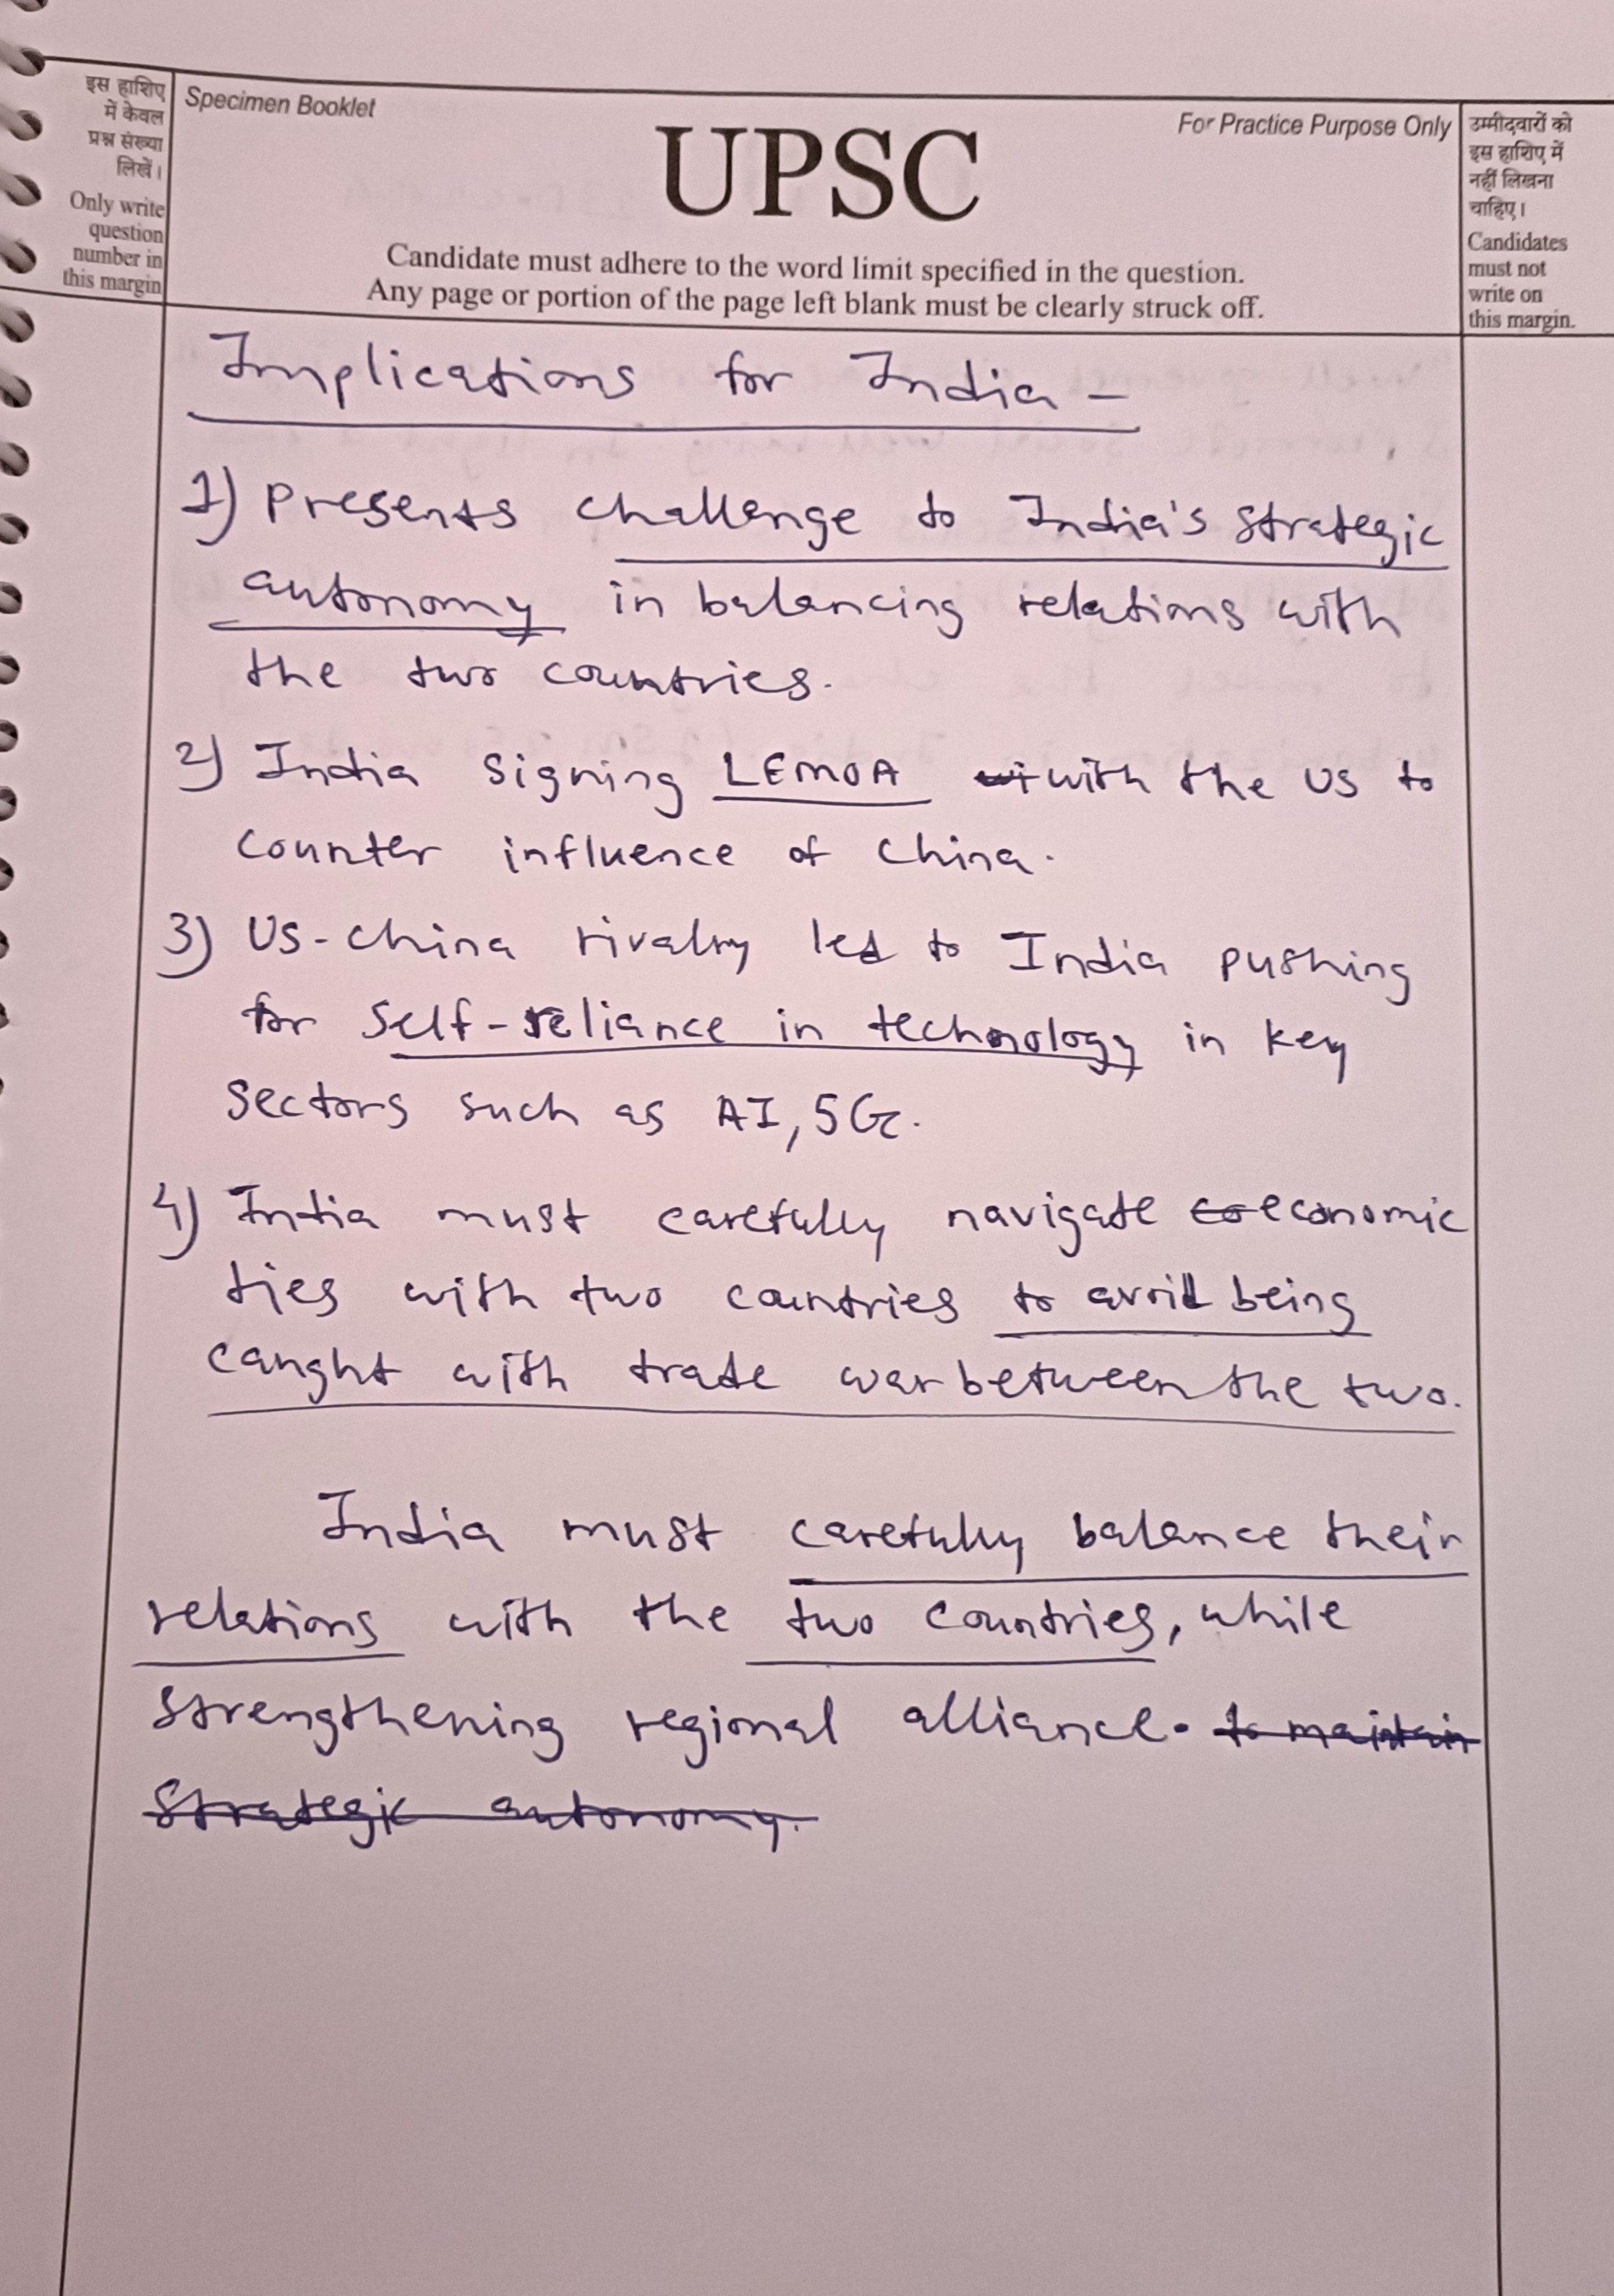 इस हाशिए
में केवल
प्रश्न संख्या
लिखें।
Only write
question
number in
this margin
Specimen Booklet
For Practice Purpose Only
UPSC
Candidate must adhere to the word limit specified in the question.
Any page or portion of the page left blank must be clearly struck off.
उम्मीदवारों को
इस हाशिए में
नहीं लिखना
चाहिए।
Candidates
must not
write on
this margin.
Implications for India –
1) Presents challenge to India's strategic
autonomy in balancing relations with
the two countries.
2) India signing LEMOA wit with the US to
counter influence of China.
3) US-China rivalry led to India pushing
for self-reliance in technology in key
sectors such as AI, 5G.
4) India must carefully navigate eco economic
ties with two countries to avoid being
caught with trade war between the two.
India must carefully balance their
relations with the two countries, while
strengthening regional alliance. to maintain
strategic autonomy.